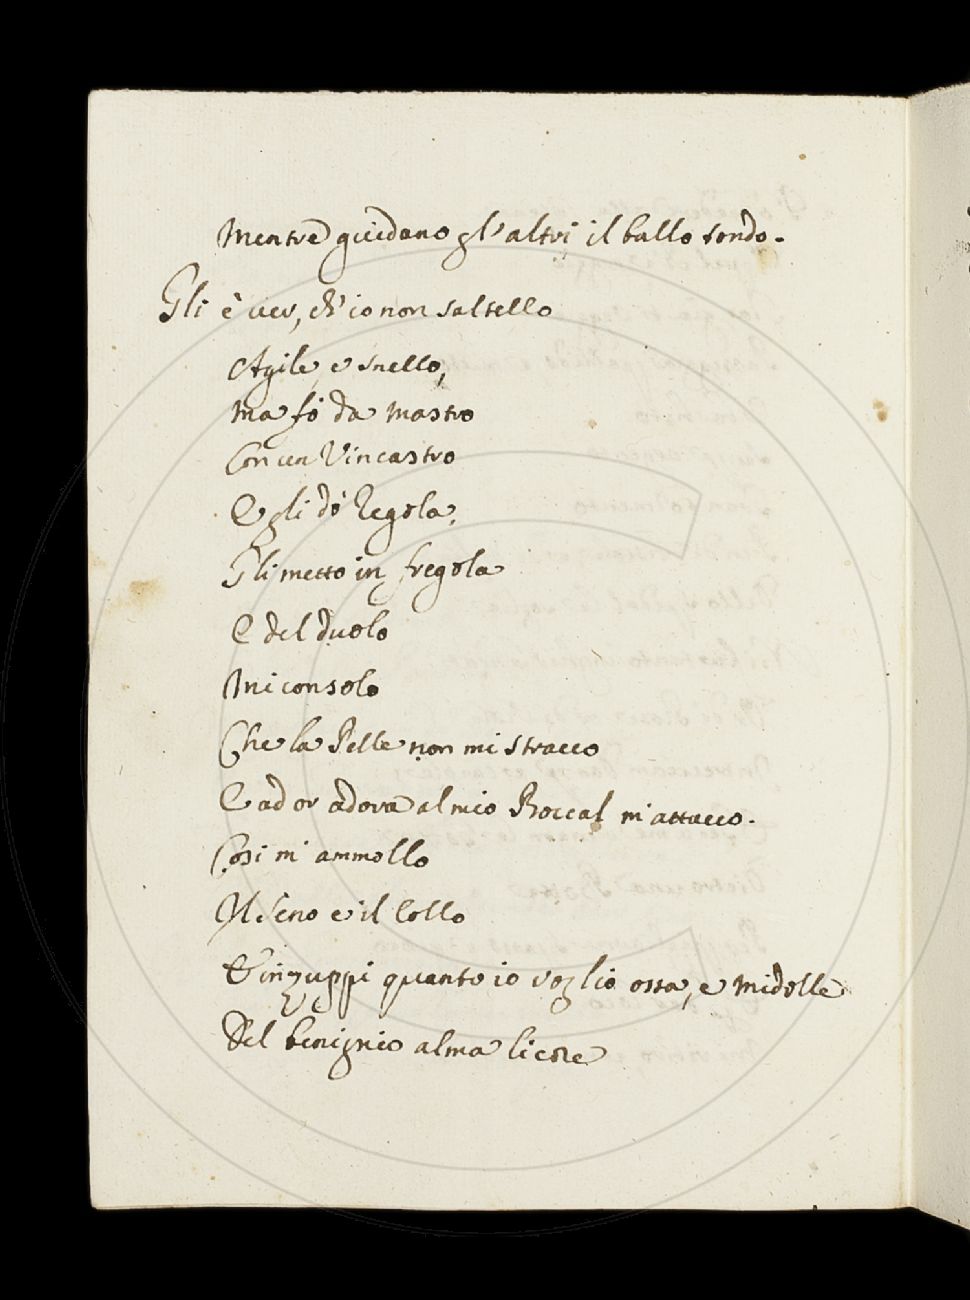 Mentre guidano gl'altri il ballo tondo.
Gli è ver, ch'io non saltello
Agile, e snello,
Ma fò da Mastro
Con un Vincastro
E gli dò Regola,
Gli metto in fregola
E del duolo
Mi consolo
Che la Pelle non mi stracco
E ad or adora al mio Boccal m'attacco.
Così m'ammollo
Il seno e il Collo
E inzuppi quanto io voglio ossa, e midolle
Del benignio alma licore